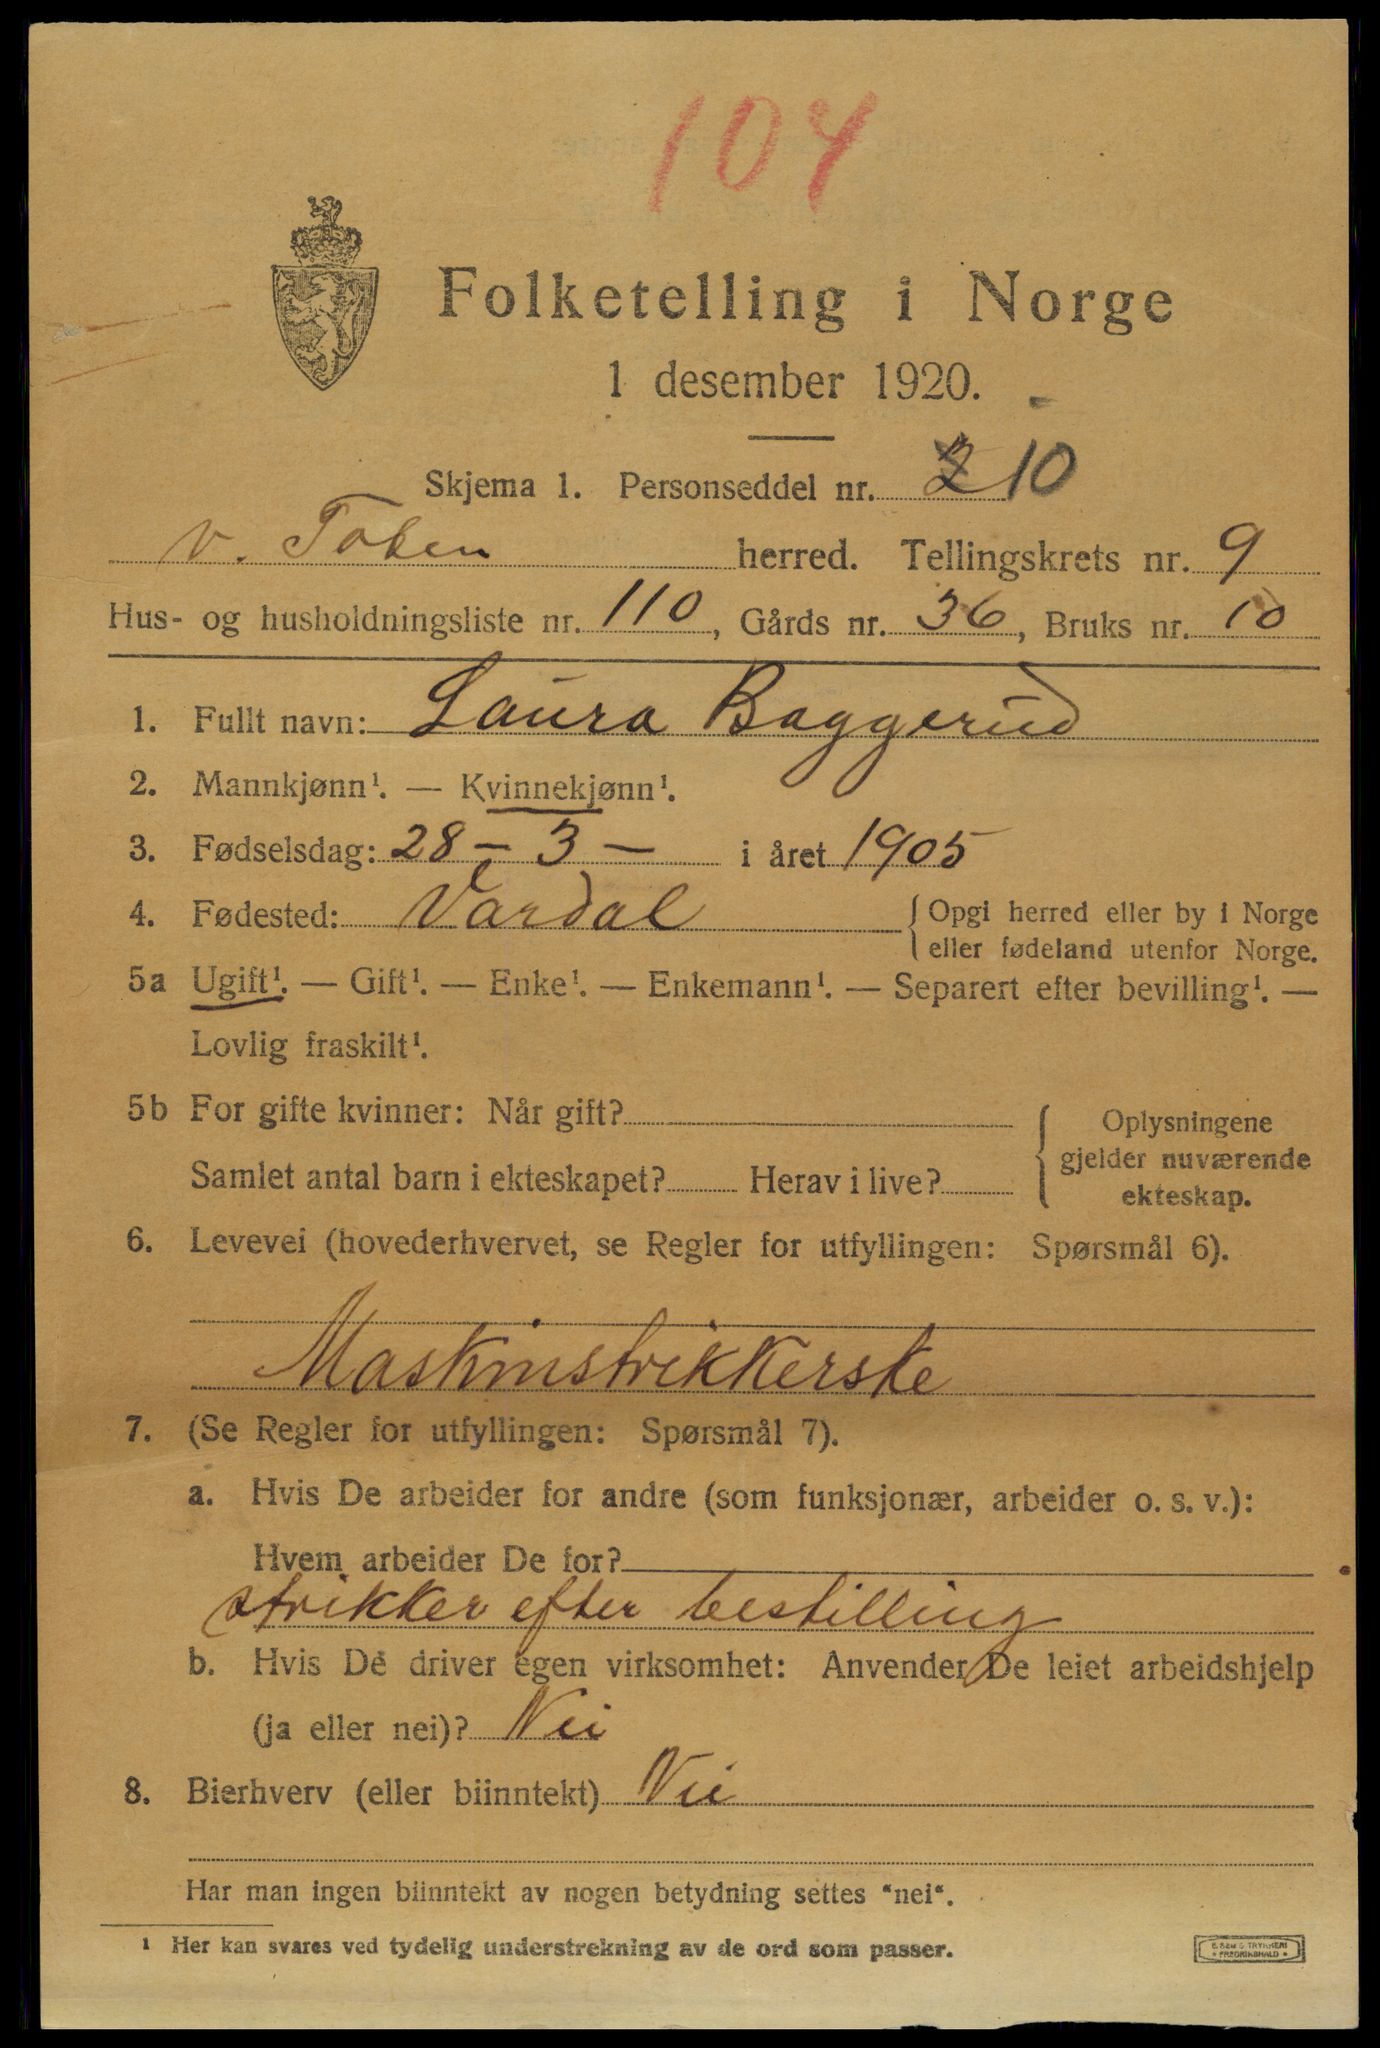 104
Folketelling i Norge
1 desember 1920.
Skjema 1. Personseddel nr. 10
v. Toten herred. Tellingskrets nr. 9
Hus- og husholdningsliste nr. 110, Gårds nr. 36, Bruks nr. 10
1. Fullt navn: Laura Baggerud
2. Mannkjønn¹. — Kvinnekjønn¹.
3. Fødselsdag: 28 – 3 – i året 1905
4. Fødested: Vardal { Opgi herred eller by i Norge
eller fødeland utenfor Norge.
5a Ugift¹. — Gift¹. — Enke¹. — Enkemann¹. — Separert efter bevilling¹. —
Lovlig fraskilt¹.
5b For gifte kvinner: Når gift?
Samlet antal barn i ekteskapet? Herav i live?
Oplysningene
gjelder nuværende
ekteskap.
6. Levevei (hovederhvervet, se Regler for utfyllingen: Spørsmål 6).
Maskinstrikkerske
7. (Se Regler for utfyllingen: Spørsmål 7).
a. Hvis De arbeider for andre (som funksjonær, arbeider o. s. v.):
Hvem arbeider De for?
strikker efter bestilling
b. Hvis De driver egen virksomhet: Anvender De leiet arbeidshjelp
(ja eller nei)? Nei
8. Bierhverv (eller biinntekt) Nei
Har man ingen biinntekt av nogen betydning settes "nei".
¹ Her kan svares ved tydelig understrekning av de ord som passer.
E. SEM'S TRYKKERI
FREDRIKSHALD